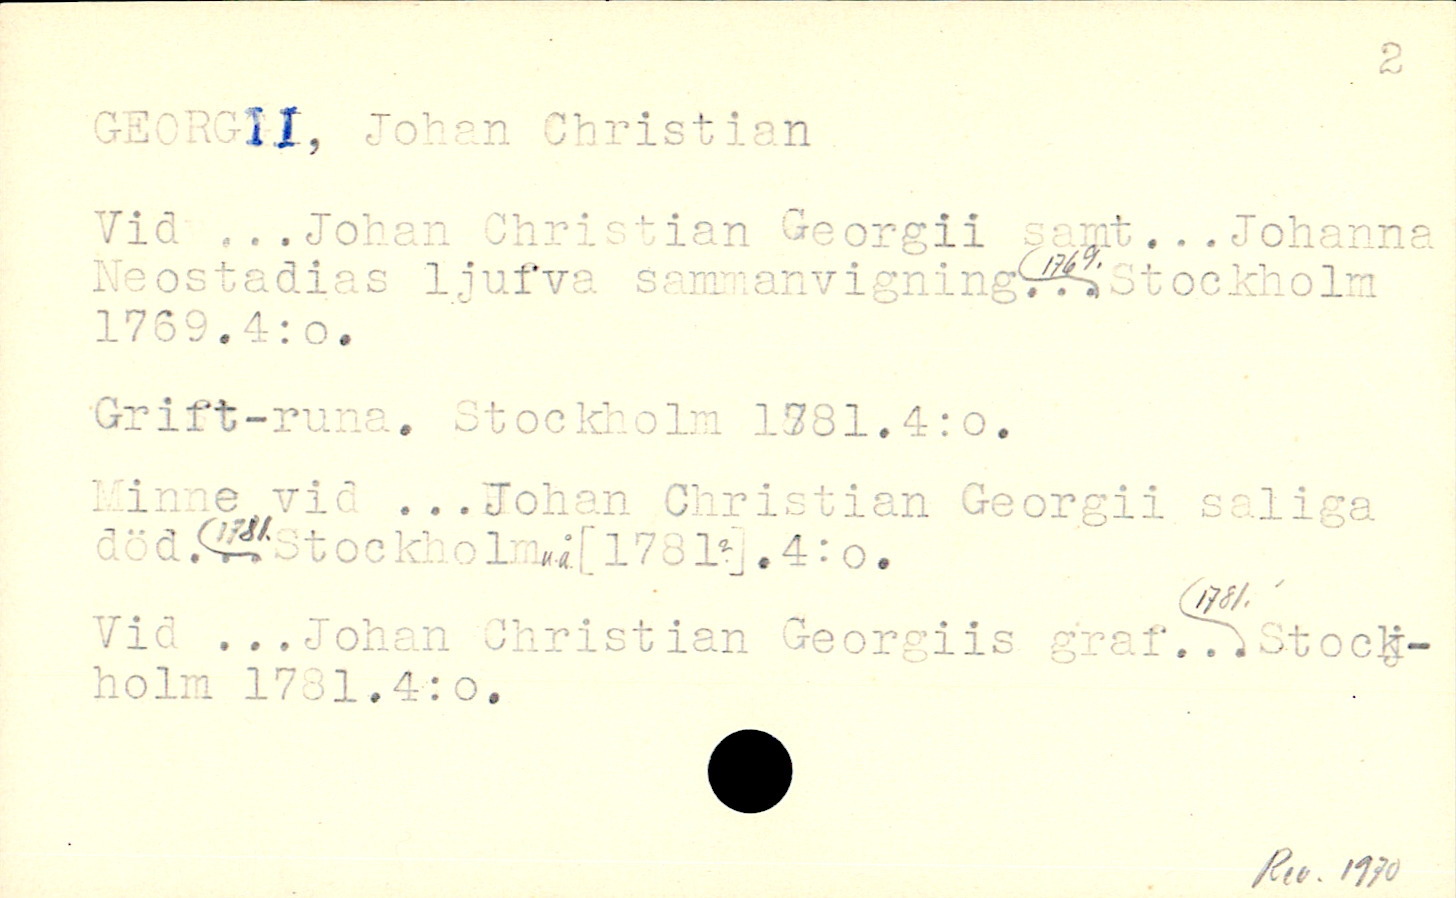 2
GEORGII, Johan Christian
Vid ...Johan Christian Georgii samt...Johanna
Neostadias ljufva sammanvigning... 1769. Stockholm
1769.4:o.
Grift-runa. Stockholm 1781.4:o.
Minne vid ...Johan Christian Georgii saliga
död... 1781. Stockholm u.å. [1781?].4:o.
Vid ...Johan Christian Georgiis graf... 1781. Stock-
holm 1781.4:o.
Rev. 1970